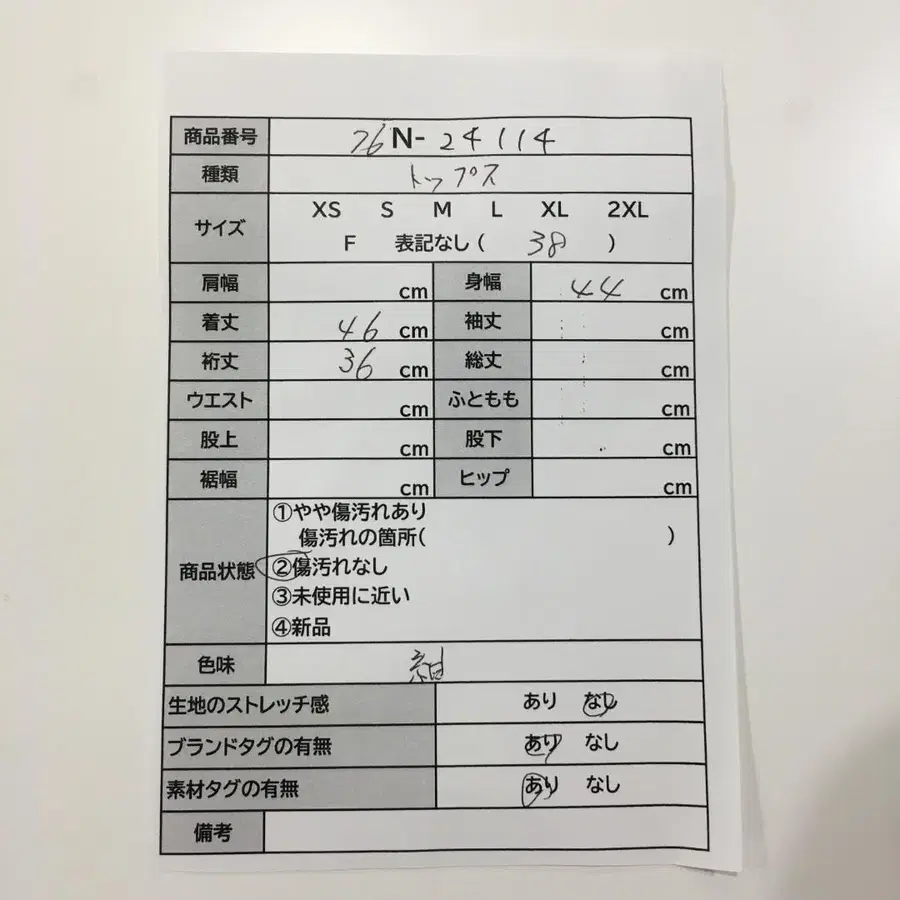 商品番号 26N-24114
種類 トップス
サイズ XS S M L XL 2XL
F 表記なし ( 38 )
肩幅 cm 身幅 44 cm
着丈 46 cm 袖丈 cm
裄丈 36 cm 総丈 cm
ウエスト cm ふともも cm
股上 cm 股下 cm
裾幅 cm ヒップ cm
商品状態 ①やや傷汚れあり
傷汚れの箇所( )
②傷汚れなし
③未使用に近い
④新品
色味 紺
生地のストレッチ感 あり なし
ブランドタグの有無 あり なし
素材タグの有無 あり なし
備考